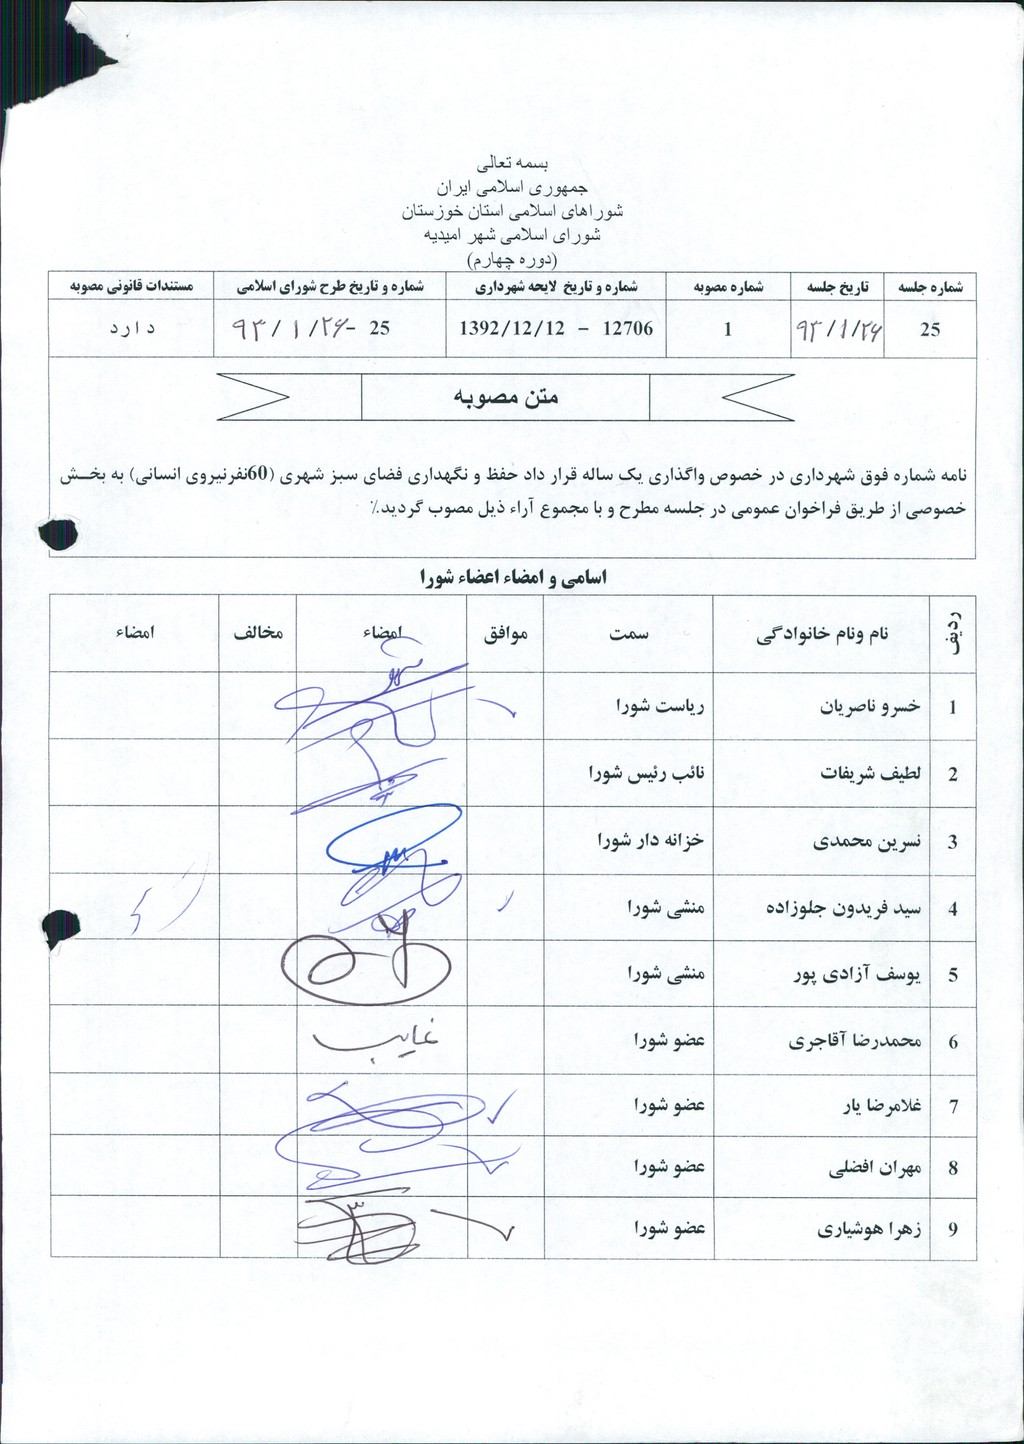 بسمه تعالی
جمهوری اسلامی ایران
شوراهای اسلامی استان خوزستان
شورای اسلامی شهر امیدیه
(دوره چهارم)
شماره جلسه تاریخ جلسه شماره مصوبه شماره و تاریخ لایحه شهرداری شماره و تاریخ طرح شورای اسلامی مستندات قانونی مصوبه
25 ۹۳/۱/۲۶ 1 12706 - 1392/12/12 25 - ۹۳/۱/۲۶ دارد
متن مصوبه
نامه شماره فوق شهرداری در خصوص واگذاری یک ساله قرار داد حفظ و نگهداری فضای سبز شهری (60نفرنیروی انسانی) به بخش
خصوصی از طریق فراخوان عمومی در جلسه مطرح و با مجموع آراء ذیل مصوب گردید.٪
اسامی و امضاء اعضاء شورا
ردیف نام ونام خانوادگی سمت موافق امضاء مخالف امضاء
1 خسرو ناصریان ریاست شورا
2 لطیف شریفات نائب رئیس شورا
3 نسرین محمدی خزانه دار شورا
4 سید فریدون جلوزاده منشی شورا
5 یوسف آزادی پور منشی شورا
6 محمدرضا آقاجری عضو شورا غایب
7 غلامرضا یار عضو شورا
8 مهران افضلی عضو شورا
9 زهرا هوشیاری عضو شورا